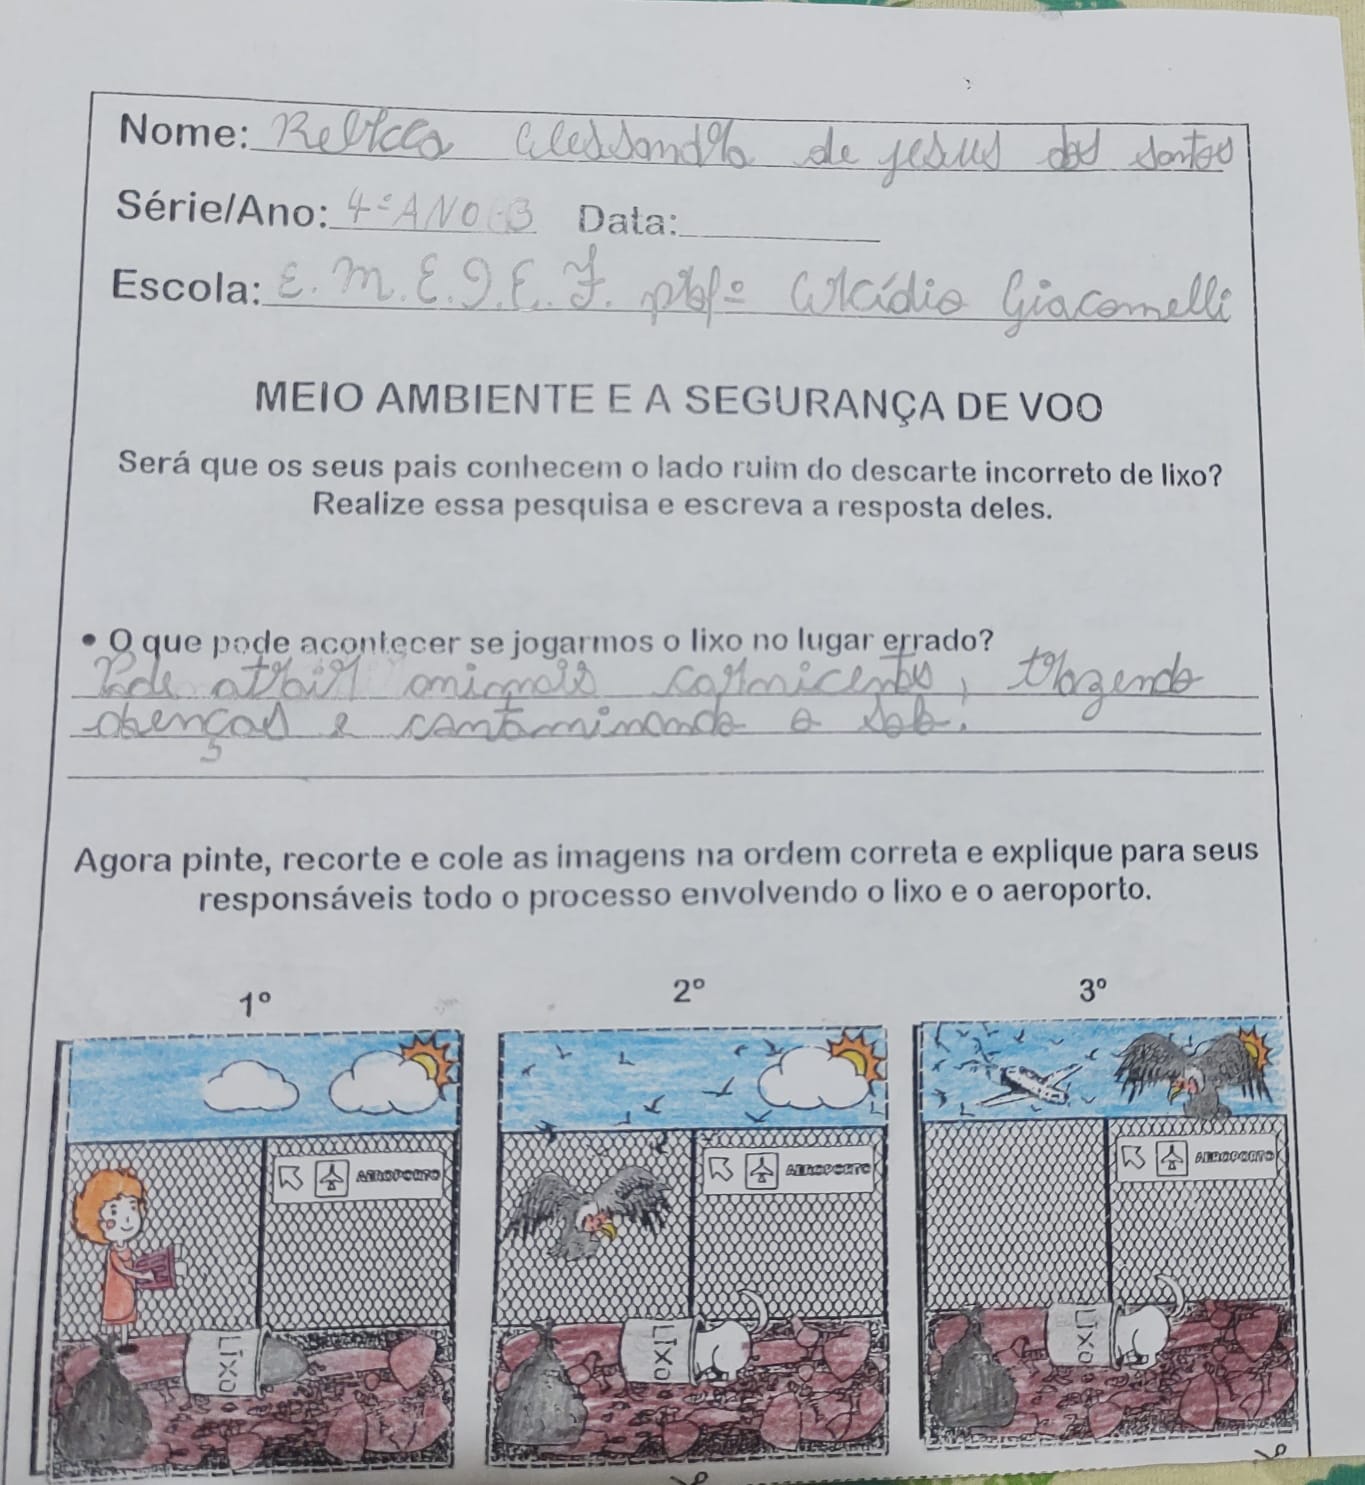 Nome: Rebicca Alessandra de jesus dos santos
Série/Ano: 4º ANO-B Data:
Escola: E.M.E.I.E.F. profº Alcídio Giacomelli
MEIO AMBIENTE E A SEGURANÇA DE VOO
Será que os seus pais conhecem o lado ruim do descarte incorreto de lixo?
Realize essa pesquisa e escreva a resposta deles.
• O que pode acontecer se jogarmos o lixo no lugar errado?
Pode atrair animais carnicentos, trazendo
doenças e contaminando o solo.
Agora pinte, recorte e cole as imagens na ordem correta e explique para seus
responsáveis todo o processo envolvendo o lixo e o aeroporto.
1º 2º 3º
AEROPORTO AEROPORTO AEROPORTO
LIXO LIXO LIXO